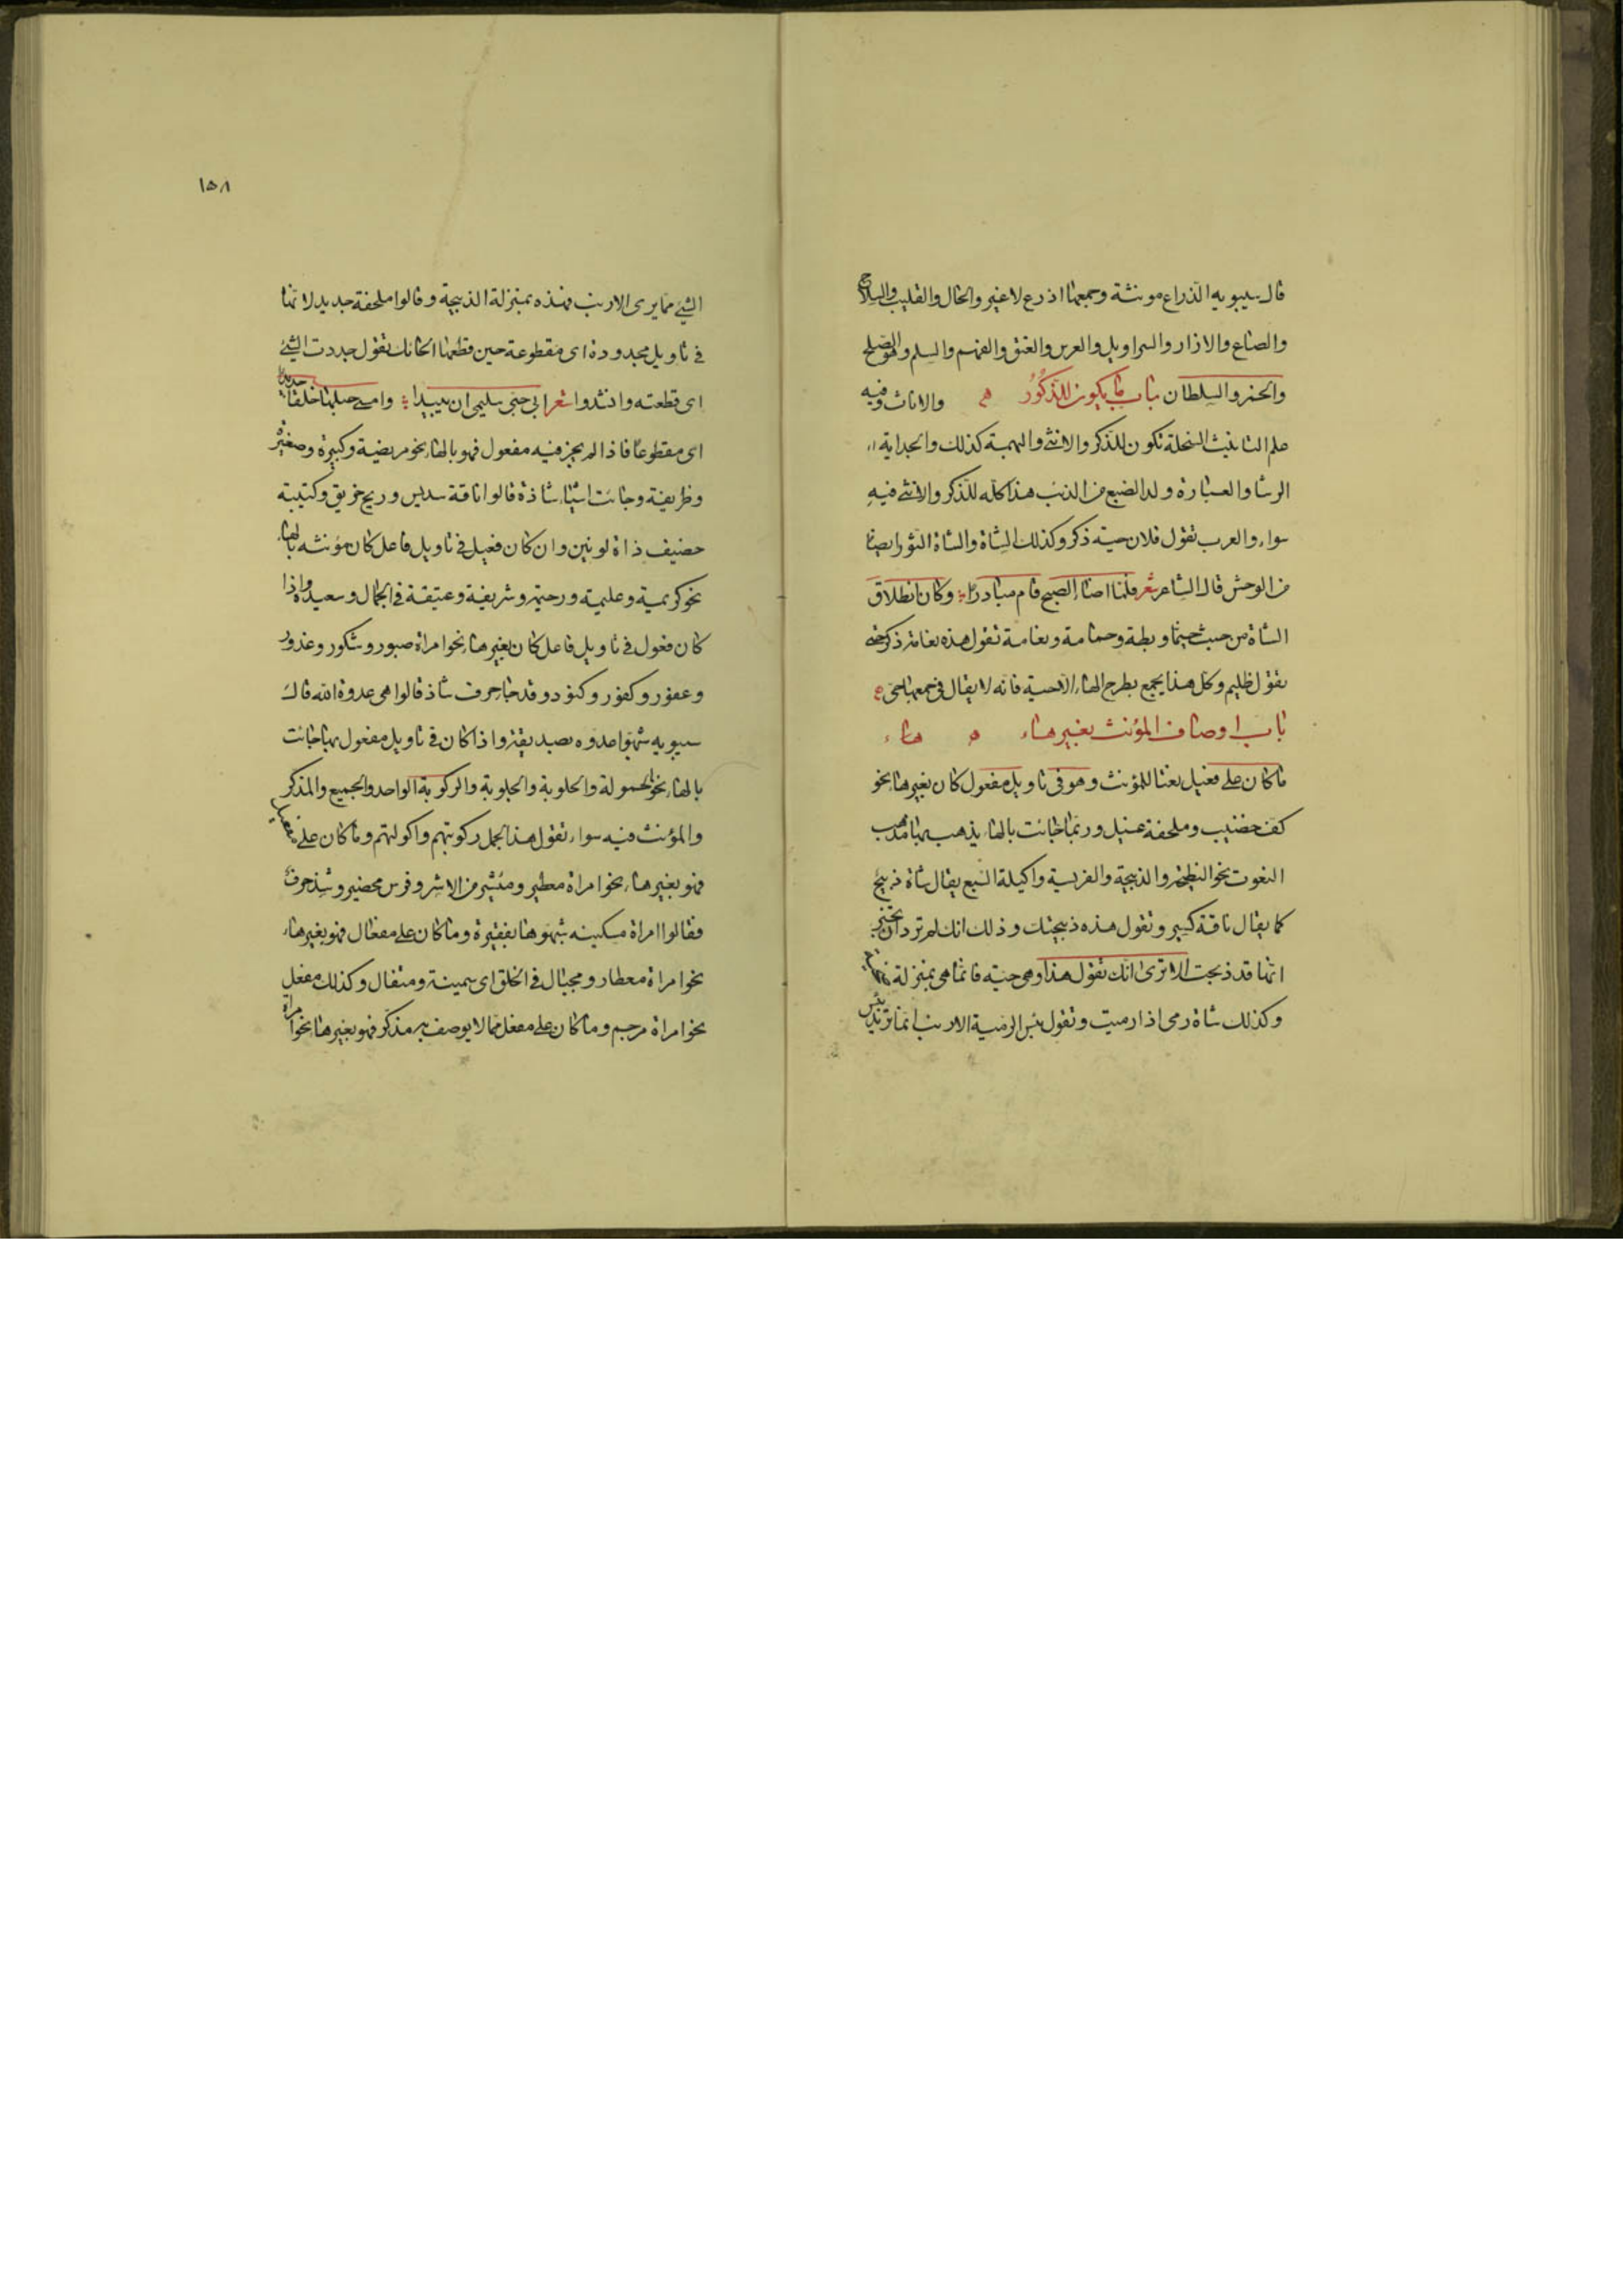 قال سيبويه الذراع مونثة وجمعها اذرع لاغير والحال والقليب والسلاح
والصاع والازار والسراويل والعرس والعنق والفهر والسلم وهو الصلح
والخمر والسلطان باب ما يكون للذكور والاناث وفيه
علم التانيث السخلة تكون للذكر والانثى والبهمة كذلك والجداية
الرشا والعسبارة ولد الضبع من الذئب هذا كله للذكر والانثى فيه
سواء والعرب تقول فلان حية ذكر وكذلك الشاة والشاة الثور ايضا
من الوحش قال الشاعر شعر فلما اضاء الصبح قام مبادرا وكان انطلاق
الشاة من حيث خيما وبطة وحمامة ونعامة تقول هذه نعامة ذكر حتى
تقول ظليم وكل هذا يجمع بطرح الهاء الا حية فانه لا يقال في جمعها حي
باب اوصاف المؤنث بغير هاء هاء
ما كان على فعيل نعتا للمؤنث وهو في تاويل مفعول كان بغير هاء نحو
كف خضيب وملحفة غسيل وربما جاءت بالهاء يذهب بها مذهب
النعوت نحو النطيحة والذبيحة والفريسة واكيلة السبع يقال شاة ذبيح
كما يقال ناقة كسير وتقول هذه ذبيحتك وذلك انك لم ترد ان تخبر
انها قد ذبحت الا ترى انك تقول هذا وهي حية فانما هي بمنزلة ضحية
وكذلك شاة رمى اذا رميت وتقول بئس الرمية الارنب انما تريد بئس
١٥٨
الشيء مما يرمى الارنب فهذه بمنزلة الذبيحة وقالوا ملحفة جديد لانها
في تاويل مجدودة اى مقطوعة حين قطعها الحائك تقول جددت الشيء
اى قطعته وانشدوا شعر ابى حبى سليمى ان يبيدا وامسى حبلها خلقا جديدا
اى مقطوعا فاذا لم يجز فيه مفعول فهو بالهاء نحو مريضة وكبيرة وصغيرة
وظريفة وجاءت اشياء شاذة قالوا ناقة سديس وريح خريق وكتيبة
خصيف ذاة لونين وان كان فعيل في تاويل فاعل كان مؤنثه بالهاء
نحو كريمة وعليمة ورحيمة وشريفة وعتيقة في الجمال وسعيدة واذا
كان فعول في تاويل فاعل كان بغير هاء نحو امراة صبور وشكور وغدور
وغفور وكفور وكنود وقد جاء حرف شاذ قالوا هى عدوة الله قال
سيبويه شبهوا عدوه بصديقة واذا كان في تاويل مفعول بها جاءت
بالهاء نحو الحمولة والحلوبة والركوبة الواحد والجميع والمذكر
والمؤنث فيه سواء تقول هذا الجمل ركوبتهم واكولتهم وما كان على مفعيل
فهو بغير هاء نحو امراة معطير ومئشير من الاشر وفرس محضير وشذ حرف
فقالوا امراة مسكينه شبهوها بفقيرة وما كان على مفعال فهو بغير هاء
نحو امراة معطار ومجبال في الخلق اى سمينة ومتفال وكذلك مفعل
نحو امراة مرجم وما كان على مفعل مما لا يوصف به مذكر فهو بغير هاء نحو امراة